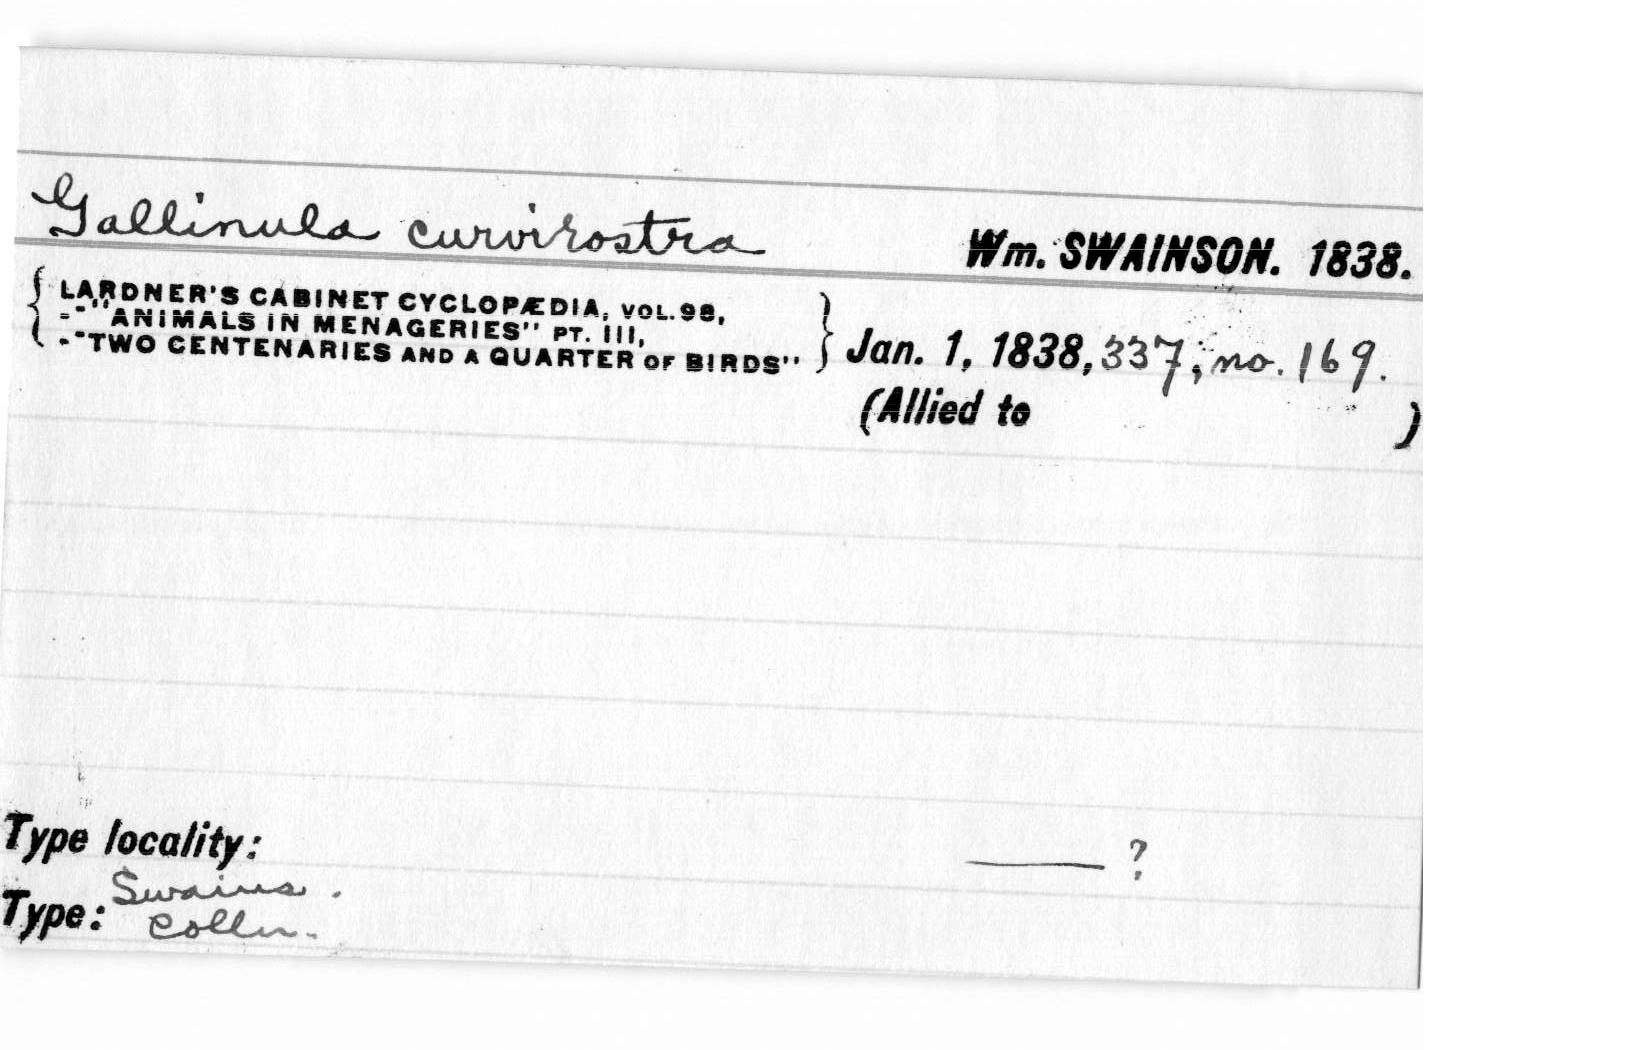 Gallinula curvirostra
Wm. SWAINSON. 1838.
LARDNER'S CABINET CYCLOPÆDIA, VOL.98,
-"ANIMALS IN MENAGERIES" PT. III,
-"TWO CENTENARIES AND A QUARTER OF BIRDS"
Jan. 1, 1838, 337; no. 169.
(Allied to )
Type locality: —— ?
Swains.
Type: Colln.